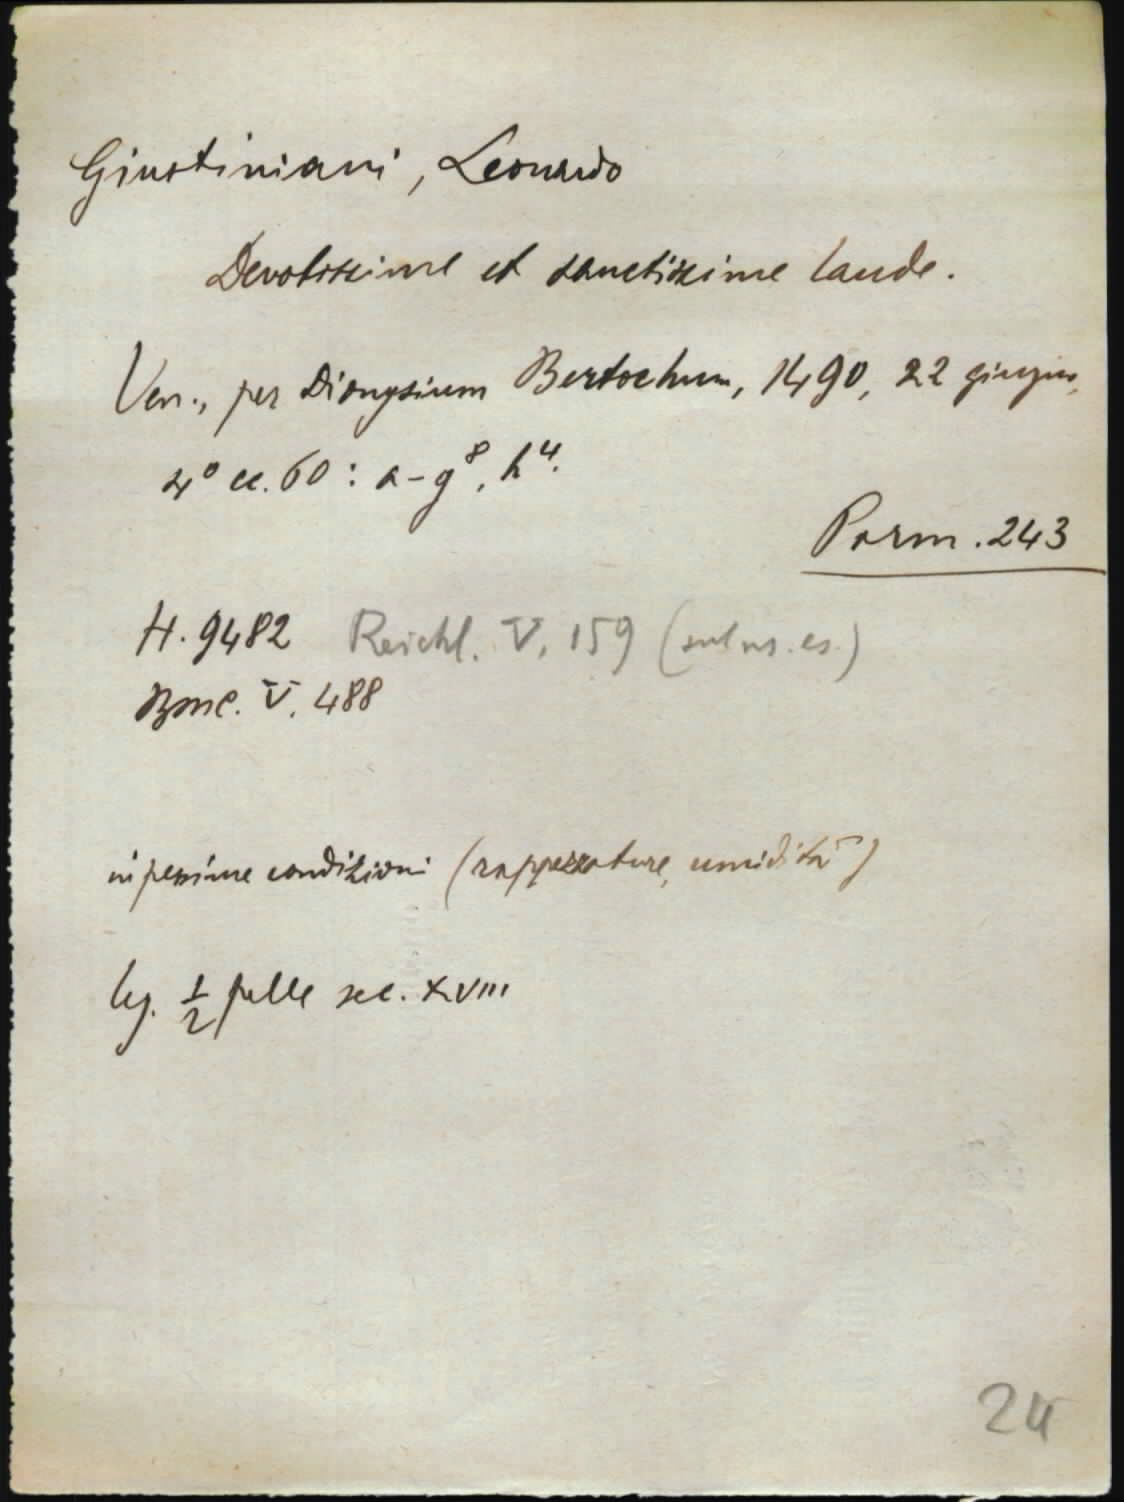 Giustiniani, Leonardo
Devotissime et sanctissime laude.
Ven., per Dionysium Bertochum, 1490, 22 giugno,
4° cc. 60: a-g⁸, h⁴.
Parm. 243
H. 9482 Reichl. V, 159 (sul ns. es.)
BMC. V. 488
in pessime condizioni (rappezzature, umidità)
leg. 1/2 pelle sec. XVIII
24